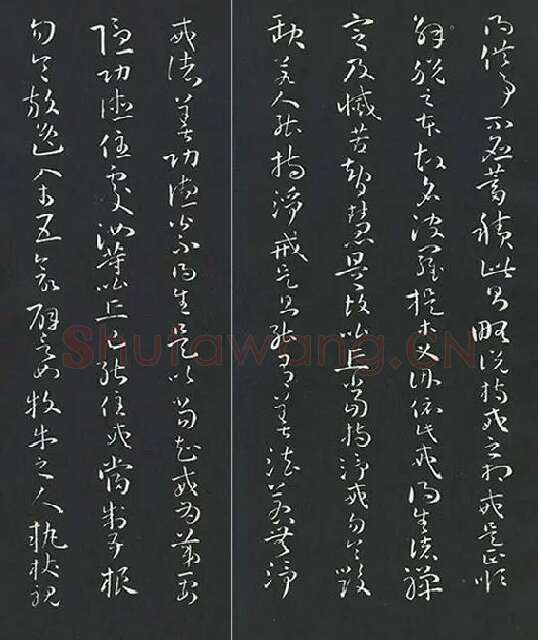 得供事不應蓄積此則略說持戒之相戒是正順
解脫之本故名波羅提木叉因依此戒得生諸禪
定及滅苦智慧是故比丘當持淨戒勿令毀
缺若人能持淨戒是則能有善法若無淨
戒諸善功德皆不得生是以當知戒為第一安
隱功德住處汝等比丘已能住戒當制五根
勿令放逸入於五欲譬如牧牛之人執杖視
Shufawang.CN